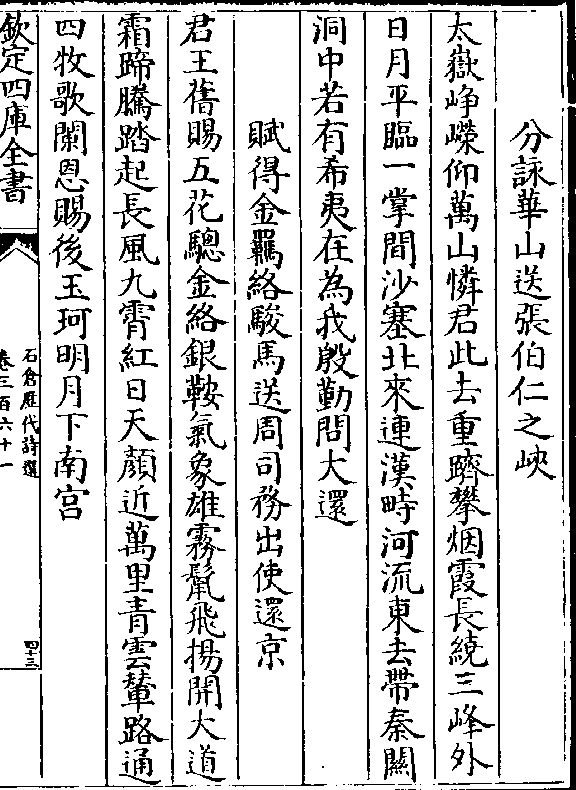 分詠華山送張伯仁之峽
太嶽崢嶸仰萬山憐君此去重躋攀烟霞長繞三峰外
日月平臨一掌間沙塞北來連漢畤河流東去帶秦關
洞中若有希夷在為我殷勤問大還
賦得金羈絡駿馬送周司務出使還京
君王舊賜五花驄金絡銀鞍氣象雄霧鬛飛揚開大道
霜蹄騰踏起長風九霄紅日天顔近萬里青雲輦路通
四牧歌闌恩賜後玉珂明月下南宫
欽定四庫全書
石倉歴代詩選
卷三百六十一
四十三